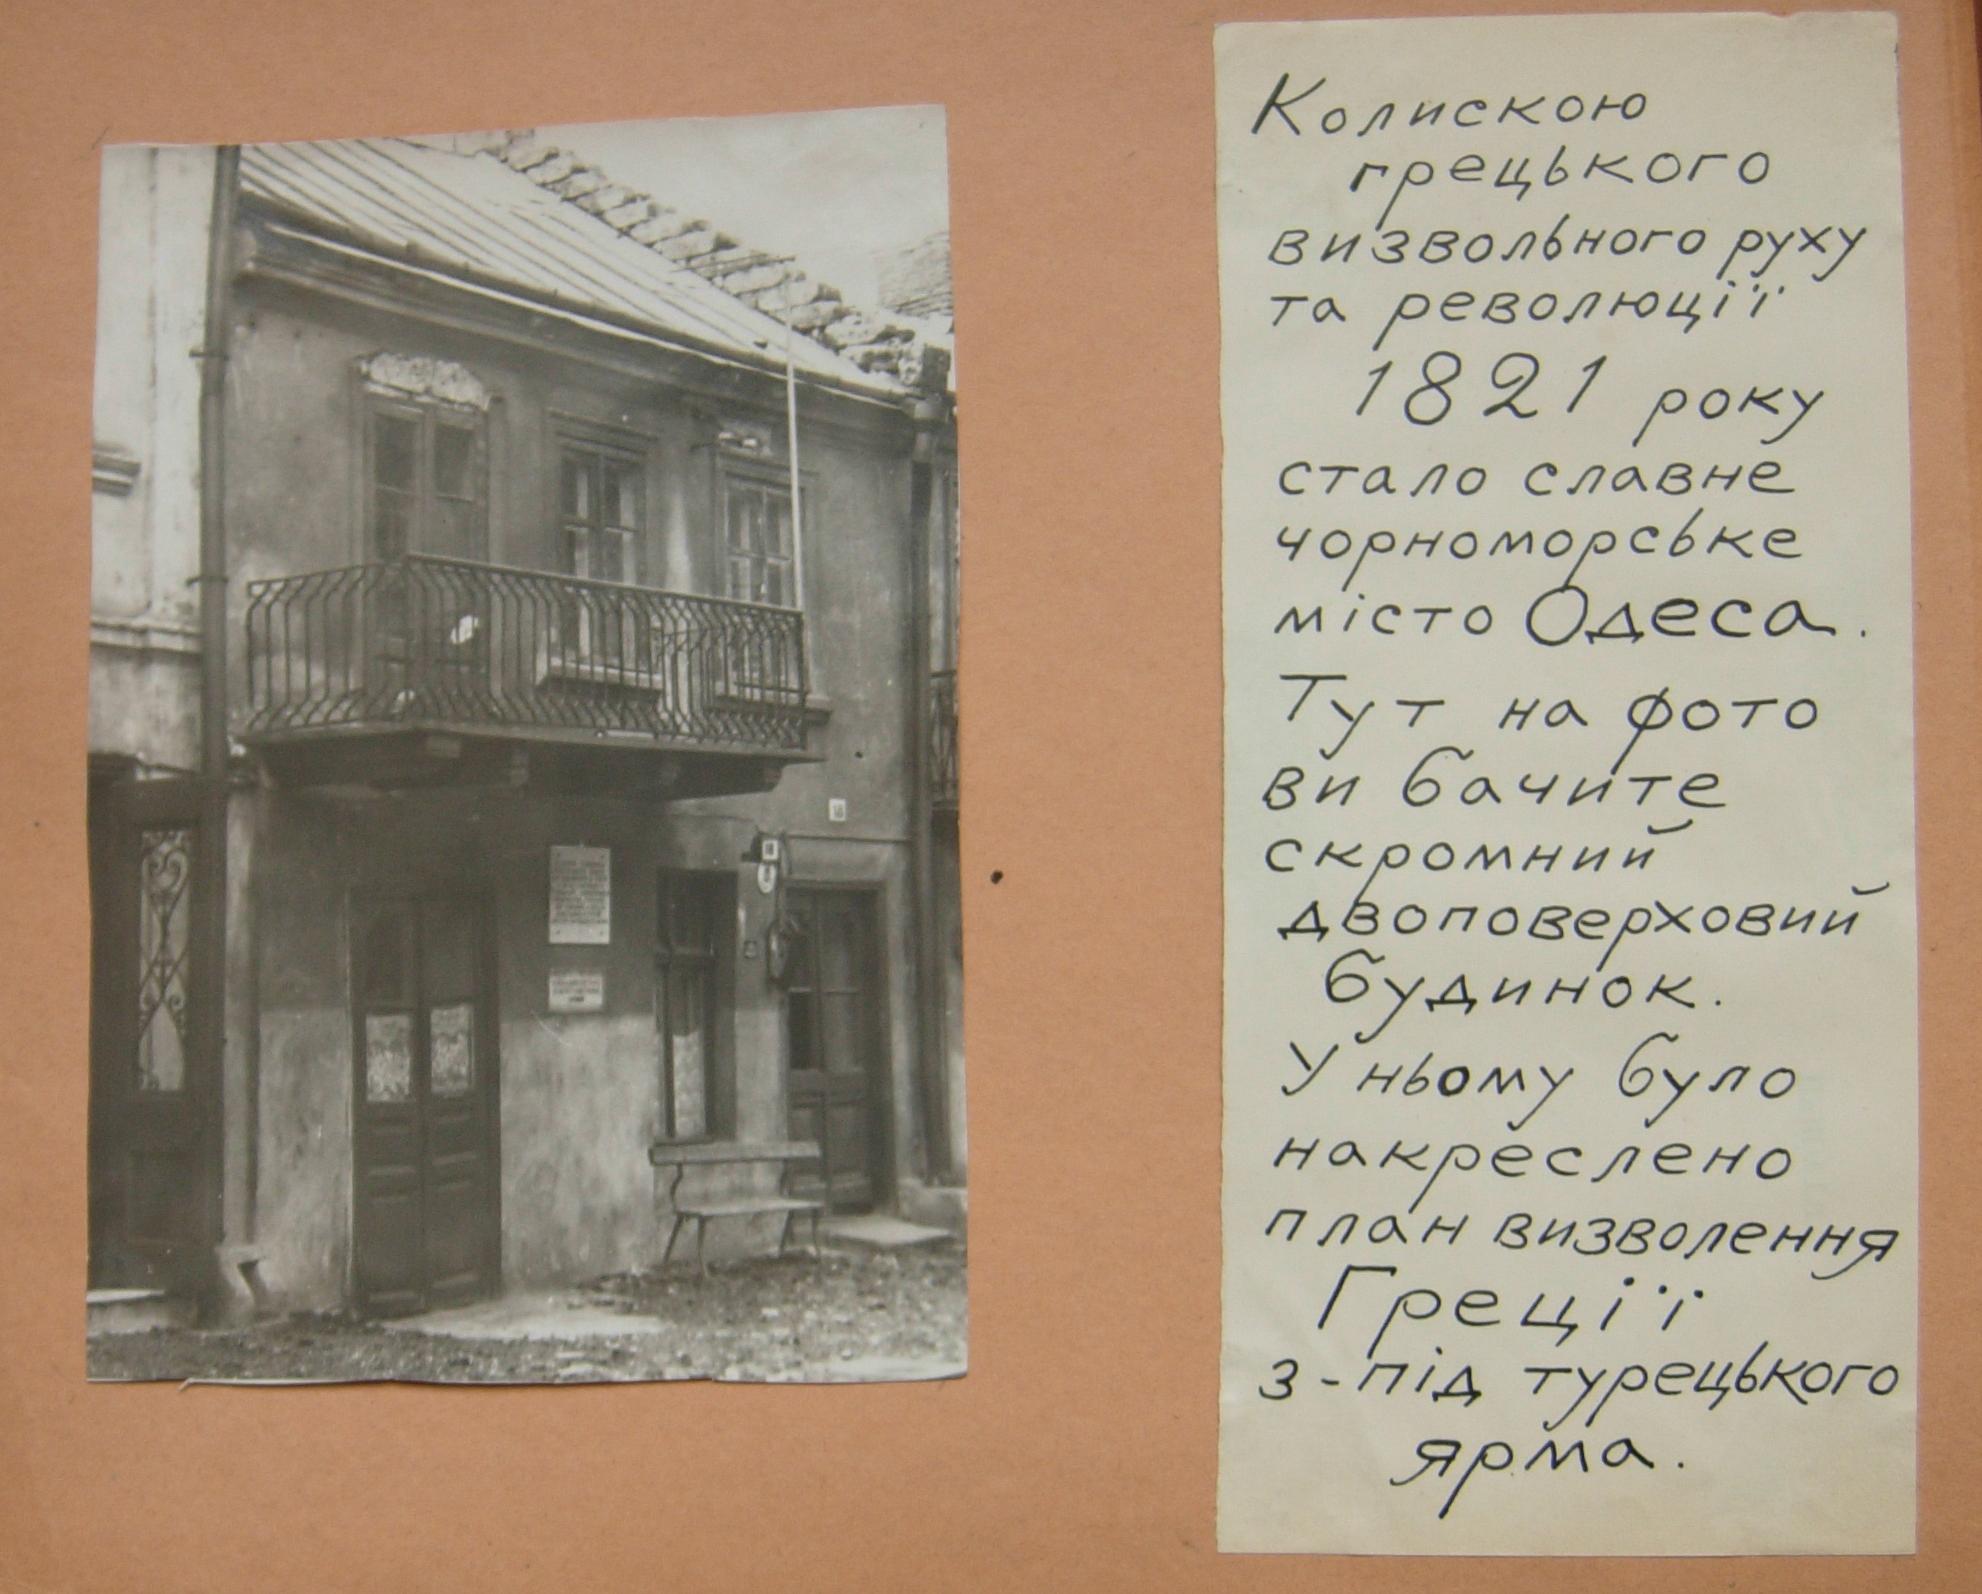 Колискою
грецького
визвольного руху
та революції
1821 року
стало славне
чорноморське
місто Одеса.
Тут на фото
ви бачите
скромний
двоповерховий
будинок.
У ньому було
накреслено
план визволення
Греції
з-під турецького
ярма.